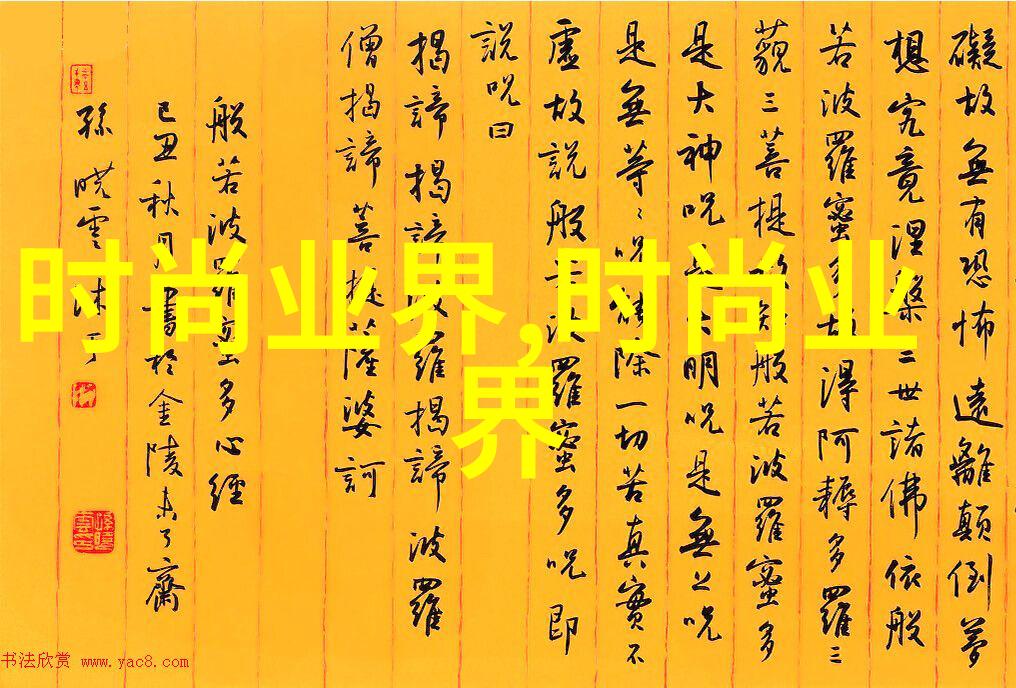 礙故無有恐怖遠離顛倒夢
想究竟涅槃三世諸佛依般
若波羅蜜多故得阿耨多羅三
藐三菩提故知般若波羅蜜多
是大神咒是大明咒是無上咒
是無等等咒能除一切苦真實不
虛故說般若波羅蜜多咒即
說咒曰
揭諦揭諦波羅揭諦波羅
僧揭諦菩提薩婆訶
般若波羅蜜多心經
己丑秋月書於金陵未了齋
孫曉雲沐手
时尚业界,时尚业
界
书法欣赏 www.yac8.com